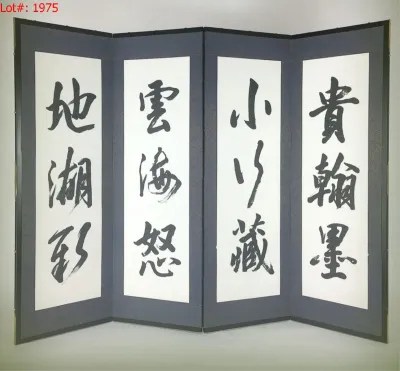 Lot#: 1975
貴翰墨
小行藏
雲海怒
地湖新